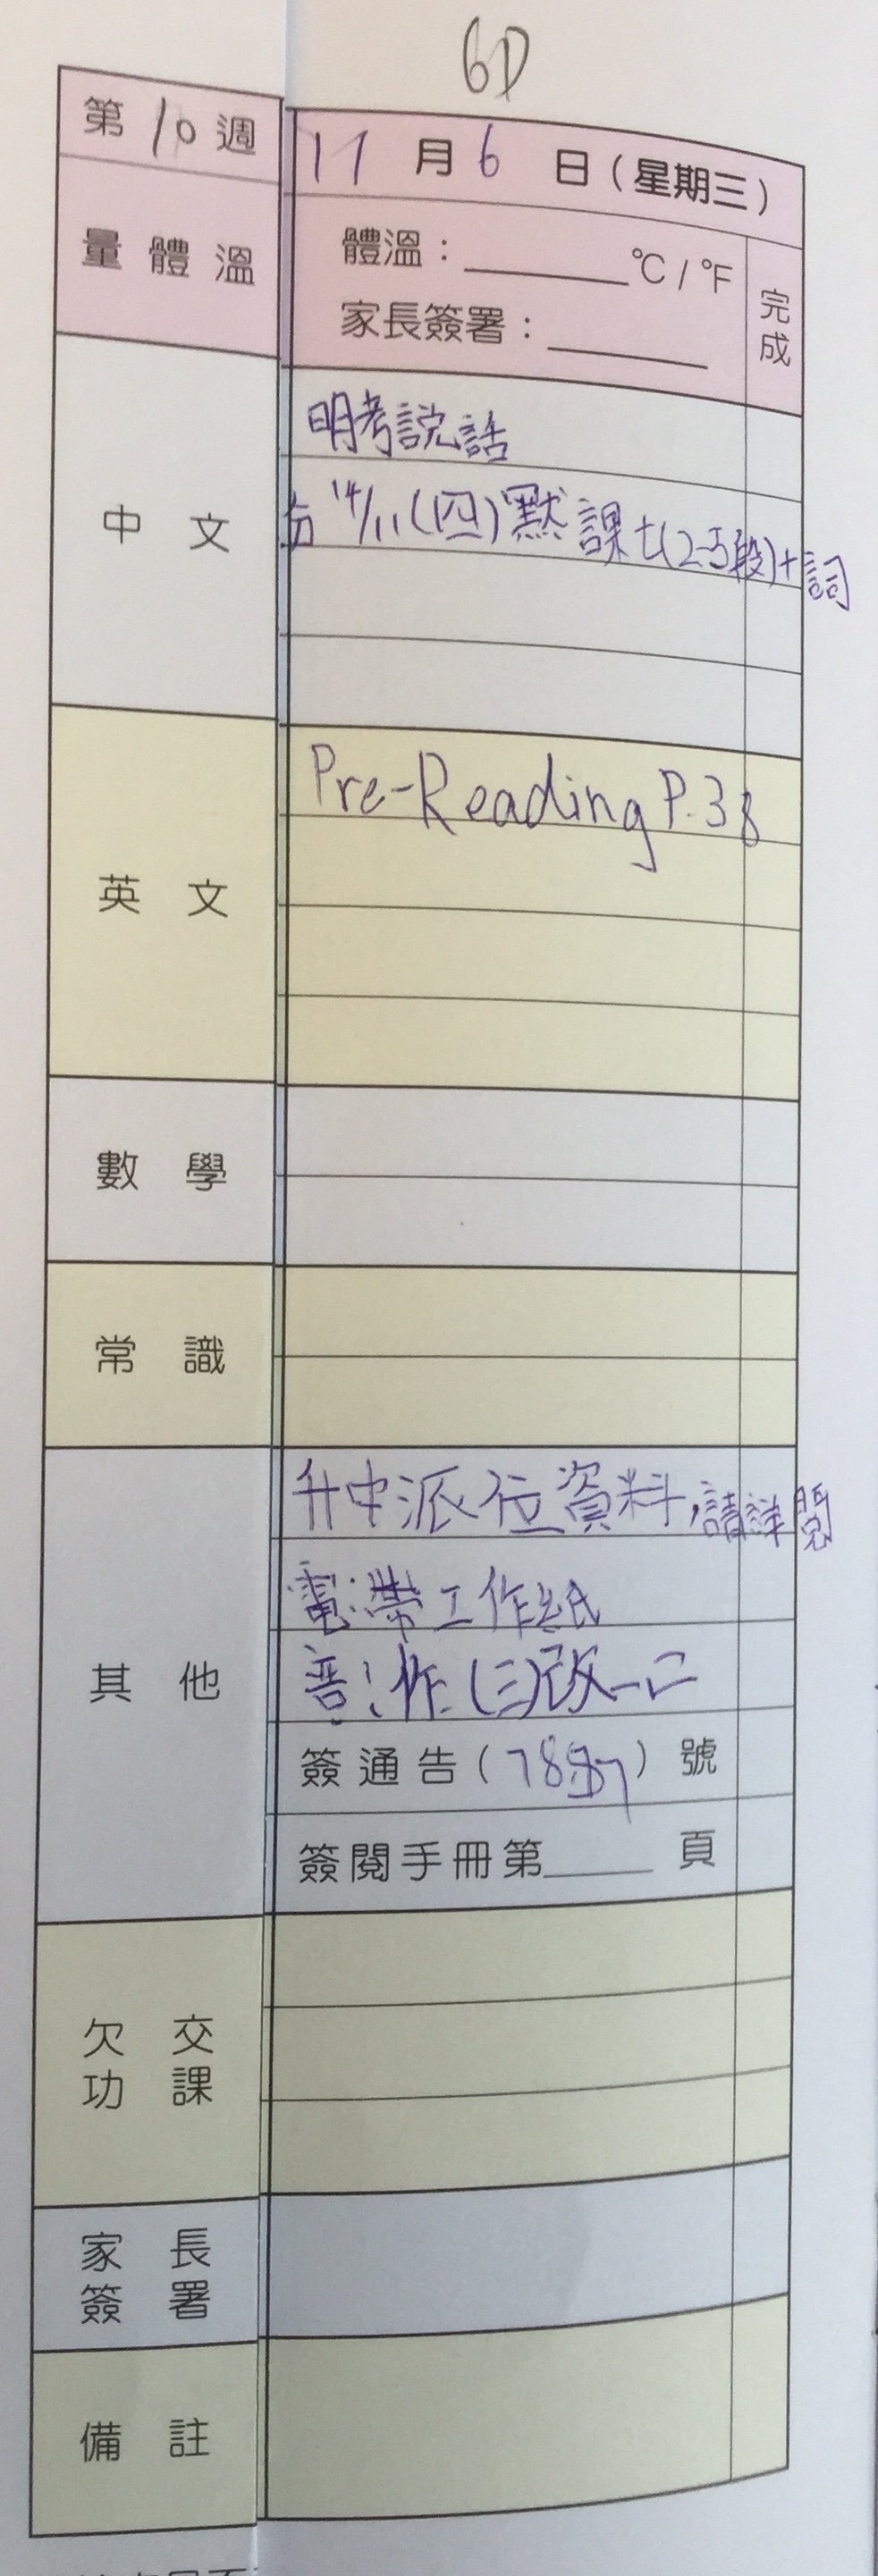 6D
第10週
11月6日(星期三)
量體溫
體溫：______°C / °F
家長簽署：______
完成
中文
明考說話
14/11(四)默課七(2-5段)+詞
英文
Pre-Reading P.38
數學
常識
其他
升中派位資料,請詳閱
電:帶工作紙
音:作(三)改一口
簽通告( )號
簽閱手冊第____頁
欠交功課
家長簽署
備註